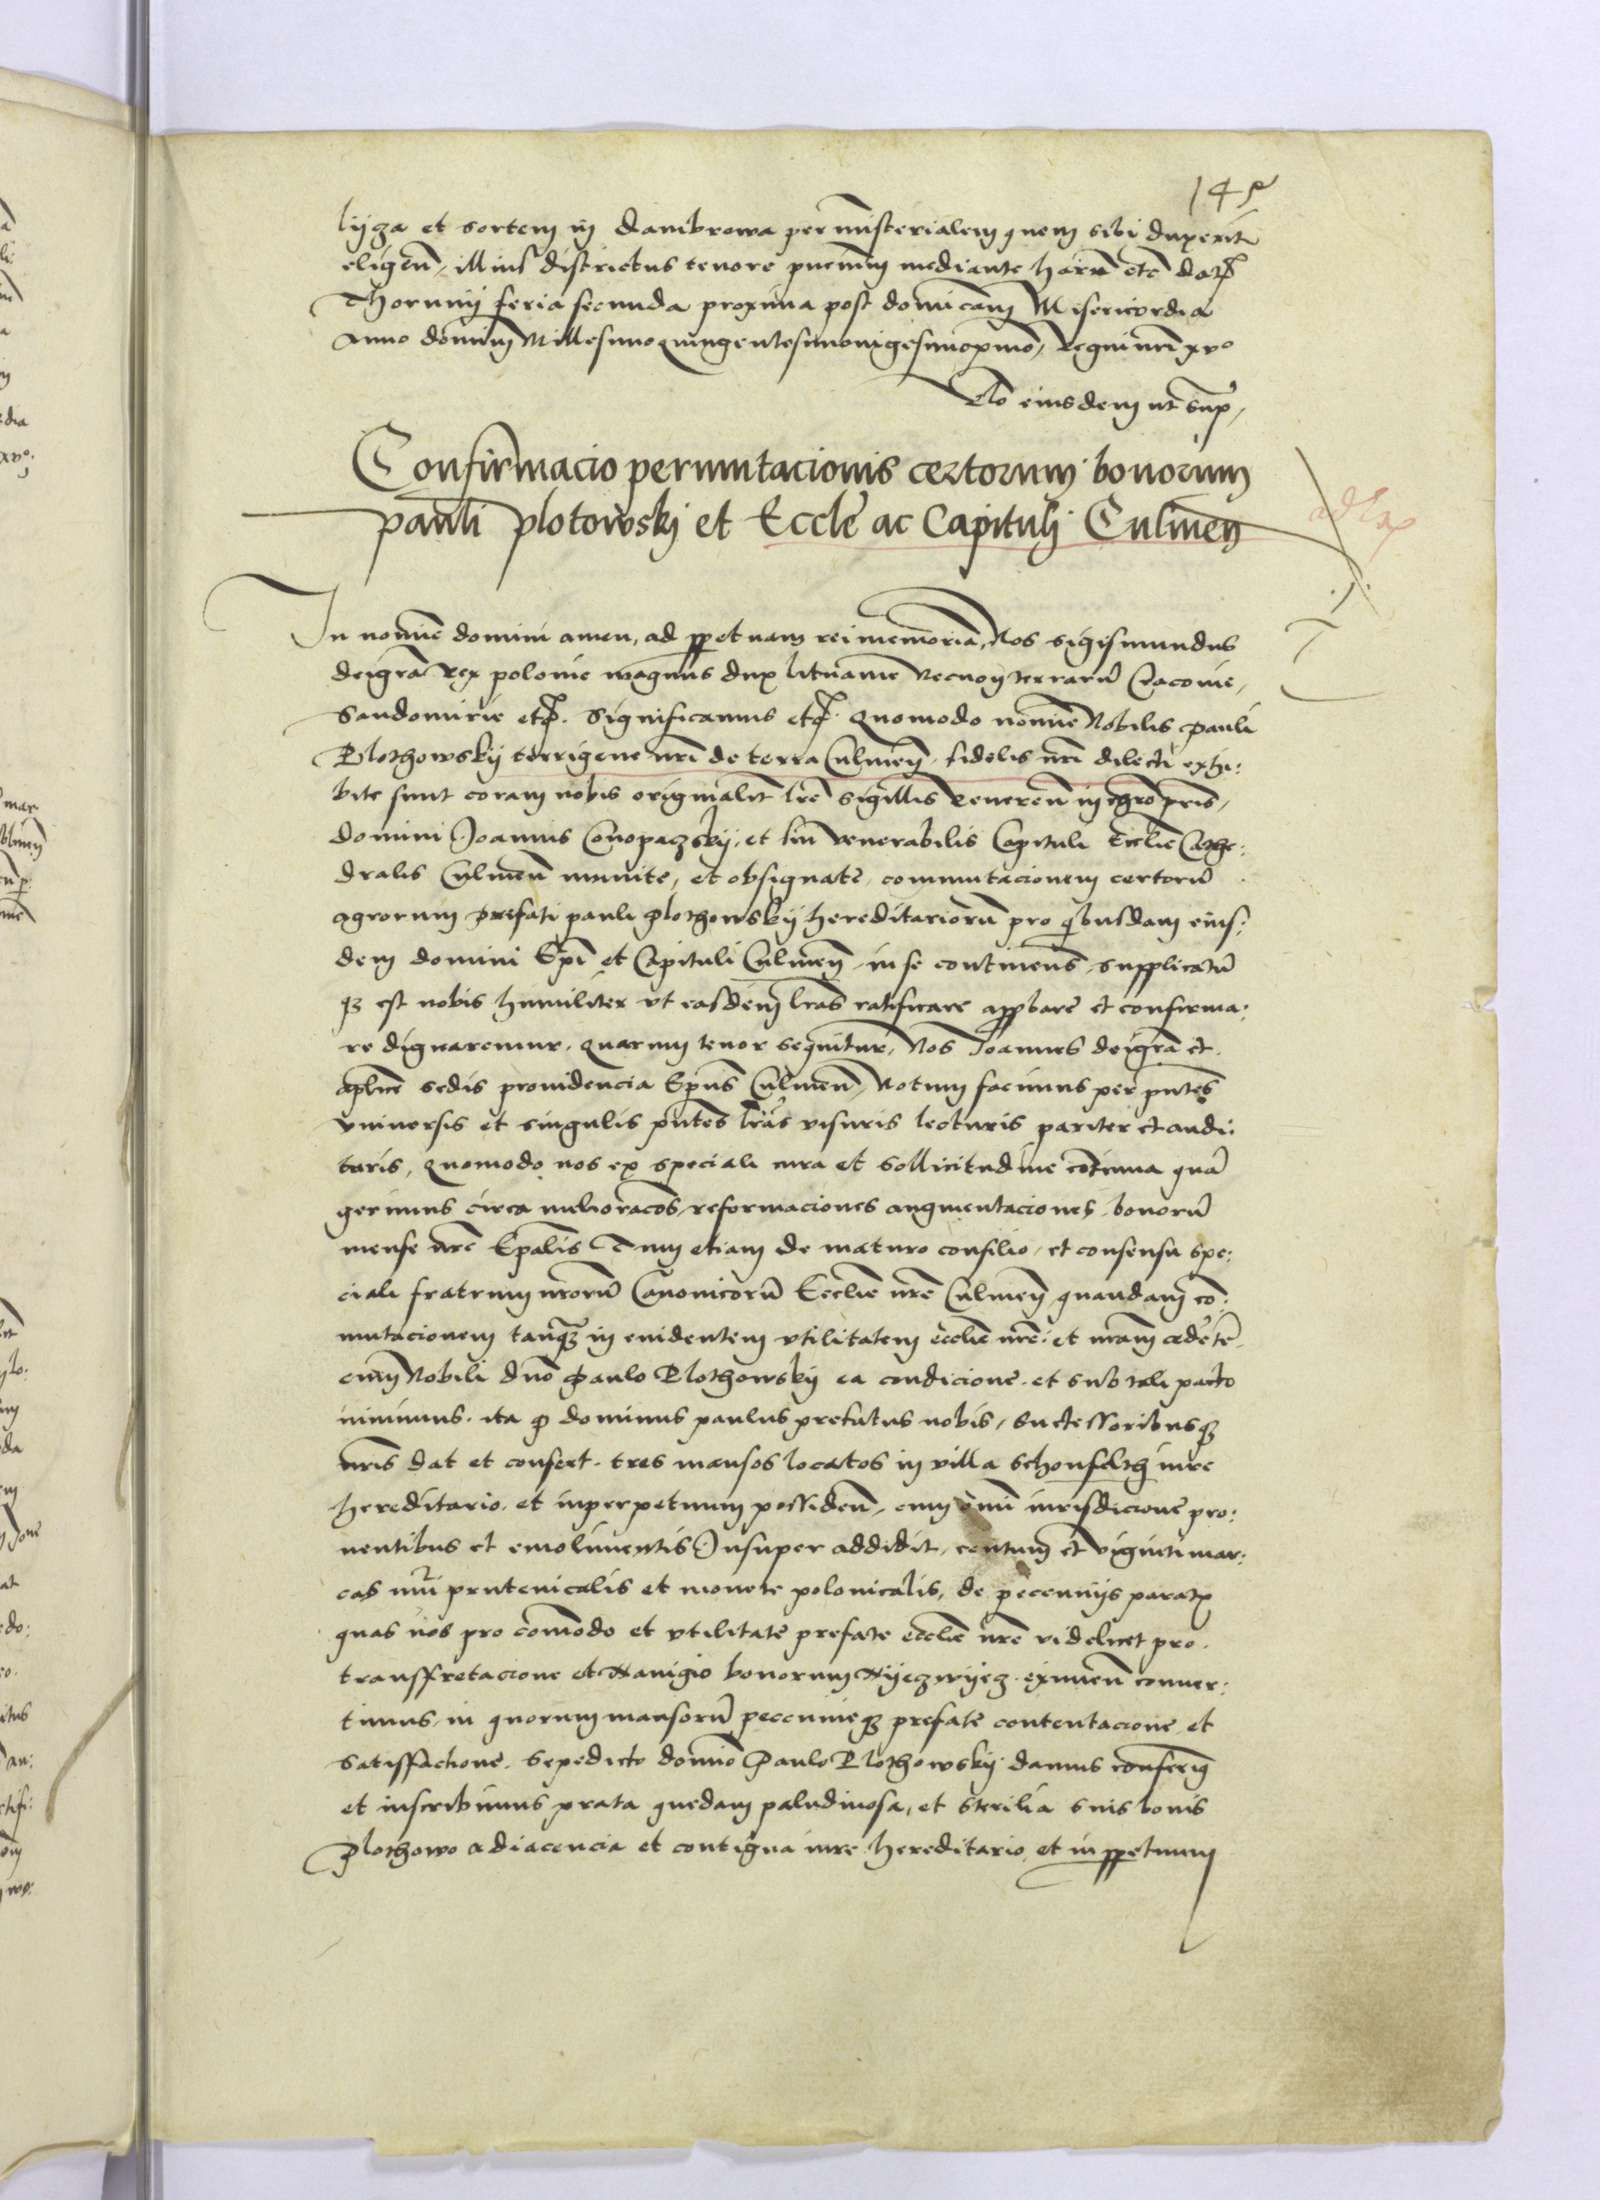 145
lyza et sortem in Dambrowa per ministerialem quem sibi duxerit
eligen̄, illius districtus tenore p̄ncium mediante harū etc̄ dat
Thorunij feria secunda proxima post domīcam Misericordia
Anno domīni Millesimoquingentesimovigesimoprīmo, Regni nr̄i xvo
Rlō eiusdem ut supr̄,
Confirmacio permutacionis certorum bonorum
pauli plotowskj et Eccl̄e ac Capituli Culmen̄
ad
In nomīe domini amen, ad ꝑpetuam rei memoriā, Nos sigismundus
dei gr̄a Rex polonie magnus dux lituanīe Necnon terrarū Cracovie,
Sandomirie etc̄. Significamus etc̄. Quomodo nomīe Nobilis pauli
Plothowskij terrigene nr̄i de terra Culmen̄. fidelis nr̄i dilecti exhi:
bite sunt coram nobis originalit̄ lr̄e sigillis Reveren̄ in chr̄o pr̄is,
domini Joannis Conopaczskij, et sīn venerabilis Capituli Eccl̄ie Cathe:
dralis Culmen̄ munite, et obsignate, commutacionem certorū
agrorum prefati pauli plothowskij hereditariorū pro qbusdam eius:
dem domini Ep̄i et Capituli Culmen̄ in se continens̄, supplicatū
qꝫ est nobis humiliter vt easdem lr̄as ratificare apꝓbare et confirma:
re dignaremur. Quarum tenor sequitur, Nos Joannes dei gr̄a et
apl̄ice sedis providencia Ep̄us Culmen̄, Notum facimus per pn̄tes
vniversis et singulis pn̄tes lr̄as visuris lecturis pariter et audi:
turis, Quomodo nos ex speciali cura et sollicitudine cōtinua quā
gerimus circa melioracōes, reformaciones augmentaciones bonorū
mense nr̄e Ep̄alis Tum etiam de maturo consilio, et consensu spe:
ciali fratrum nr̄orū Canonicorū Eccl̄ie nr̄e Culmen̄ quandam cō:
mutacionem tanqꝫ in evidentem vtilitatem eccl̄ie nr̄e. et
cum Nobili dn̄o Paulo Plothowskij ea condicione. et sub tali pacto
inimus. ita ꝙ dominus paulus prefatus nobis, successoribusqꝫ
nr̄is dat et confert. tres mansos locatos in villa Schonfeltth iure
hereditario. et inperpetuum possiden̄. cum om̄i iurisdicione pro:
ventibus et emolimentis Insuper addidit, centum et viginti mar:
cas nūi prutenicalis et monete polonicalis, de pecuniis paratꝭ
quas nos pro comōdo et vtilitate prefate eccl̄ie nr̄e videlicet pro
transfretacione et Navigio bonorum Nyeczwyecz. eximen̄ conver:
timus, in quorum mansorū pecunieqꝫ prefate contentacione et
satisfactione. sepedicto domīo Paulo Plothowskij damus conferim̄
et inscribimus prata quedam paludinosa, et sterilia suis bonis
Plothowo adiacencia et contigua iure hereditario, et in ꝑpetuum